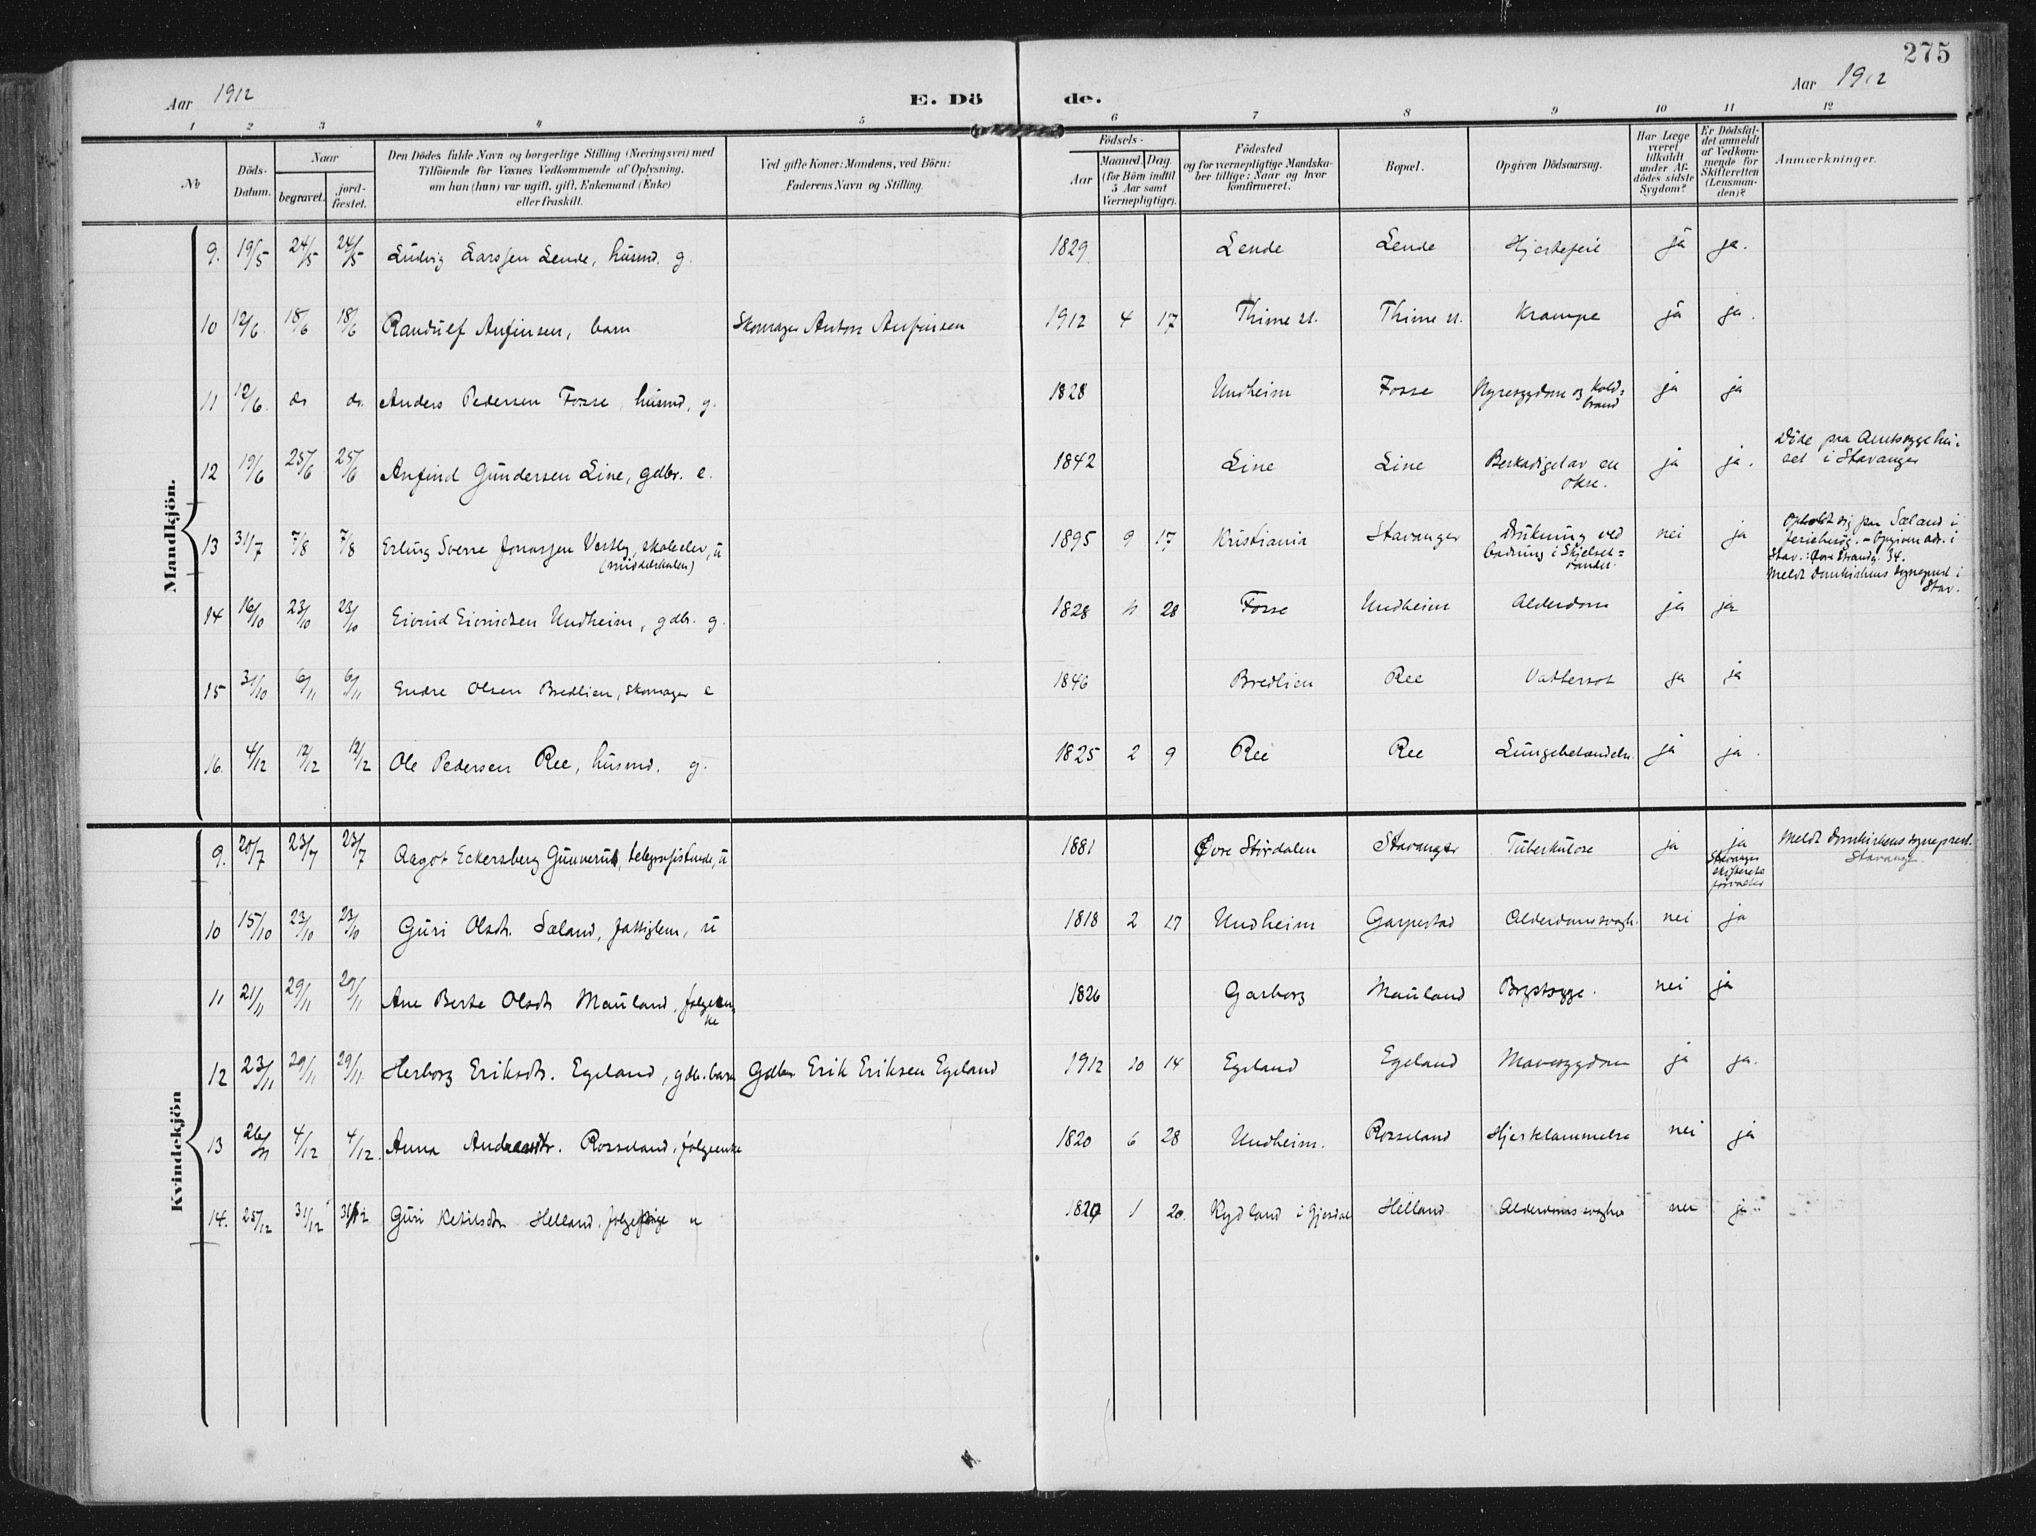 275
Aar 1912
E. Dö de.
Aar 1912
1 2 3 4 5 6 7 8 9 10 11 12
No
Döds-
Datum.
Naar
begravet.
jord-
fæstet.
Den Dödes fulde Navn og borgerlige Stilling (Næringsvei) med
Tilföiende for Voxnes Vedkommende af Oplysning,
om han (hun) var ugift, gift, Enkemand (Enke)
eller fraskilt.
Ved gifte Koner: Mandens, ved Börn:
Faderens Navn og Stilling.
Födsels-
Aar
Maaned. Dag.
(for Børn indtil
5 Aar samt
Værnepligtige).
Födested
og for værnepligtige Mandska-
ber tillige: Naar og hvor
konfirmeret.
Bopæl.
Opgiven Dödsaarsag.
Har Læge
været
tilkaldt
under Af-
dødes sidste
Sygdom?
Er Dødsfal-
det anmeldt
af Vedkom-
mende for
Skifteretten
(Lensman-
den)?
Anmærkninger.
Mandkjön.
9. 19/5 24/5 24/5 Ludvig Larssen Lende, husmd. g. 1829 Lende Lende Hjertefeil ja ja.
10 12/6 18/6 18/6 Randulf Anfinsen, barn Skomager Anton Anfinsen 1912 4 17 Thime st. Thime st. Krampe ja ja.
11 12/6 do do. Anders Pedersen Fosse, husmd, g. 1828 Undheim Fosse Nyresygdom og Kold-
brand ja ja
12 19/6 25/6 25/6 Anfind Gundersen Line, gdbr. e. 1842 Line Line Beskadiget av en
okse. ja ja. Døde paa Amtssygehu-
set i Stavanger
13 31/7 7/8 7/8 Erling Sverre Jonassen Vestly, skoleelev, u
(middelskolen) 1895 9 17 Kristiania Stavanger Drukning ved
badning i Skjelset-
vandet. nei ja Opholdt sig paa Sæland i
feriebesøg. - Opgiven adr. i
Stav.: Øvre Strandg. 34.
Meldt Domkirkens sognepræst i
Stav.
14 16/10 23/10 23/10 Eivind Eivindsen Undheim, gdbr. g. 1828 4 28 Fosse Undheim Alderdom ja ja
15 31/10 6/11 6/11 Endre Olsen Bredlien, skomager e 1846 Bredlien Ree Vattersot ja ja
16. 4/12 12/12 12/12 Ole Pedersen Ree, husmd. g. 1825 2 9 Ree Ree Lungebetændelse ja ja.
Kvindekjön
9. 20/7 23/7 23/7 Ragot Eckersberg Gunnerud, telegrafistinde, u 1881 Øvre Stördalen Stavanger Tuberkulose ja ja
Stavanger
skifterets
forvalter Meldt Domkirkens sognepræst.
Stavanger
10 15/10 23/10 23/10 Guri Olsdt. Sæland, fattiglem, u 1818 2 17 Undheim Garpestad Alderdomssvagh. nei ja
11 21/11 29/11 29/11 Ane Berte Olsdtr Mauland, folgeen-
ke 1826 Garborg Mauland Brystsyge. nei ja
12 23/11 29/11 29/11 Herborg Eriksdtr. Egeland, gdbr. barn Gdbr Erik Eriksen Egeland 1912 10 14 Egeland Egeland Mavesygdom ja ja.
13 26/11 4/12 4/12. Anna Andreasdtr. Rosseland, folgeenke 1820 6 28 Undheim. Rosseland Hjertelammelse nei ja
14. 25/12 31/12 31/12 Guri Ketilsdtr Helland. u 1 20. Kydland i Gjesdal Helland Alderdomssvaghed nei ja